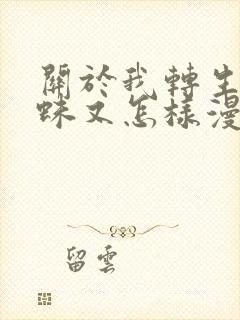 關於我轉生
咪又怎樣漫
留雲